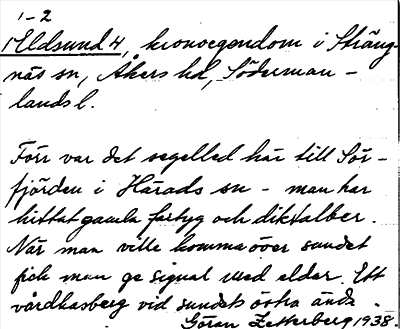 1-2
Eldsund 4, kronoegendom i Sträng-
näs sn, Åkers hd, Söderman-
lands l.
Förr var det segelled här till Sör-
fjärden i Härads sn - man har
hittat gamla fartyg och diktalber.
När man ville komma över sundet
fick man ge signal med eldar. Ett
vårdkasberg vid sundets östra ända.
Göran Zetterberg 1938.